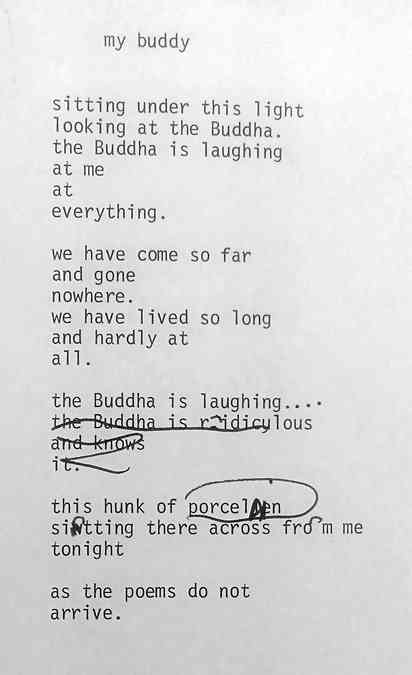 my buddy
sitting under this light
looking at the Buddha.
the Buddha is laughing
at me
at
everything.
we have come so far
and gone
nowhere.
we have lived so long
and hardly at
all.
the Buddha is laughing....
the Buddha is ridiculous
and knows
it.
this hunk of porcelen
sitting there across from me
tonight
as the poems do not
arrive.